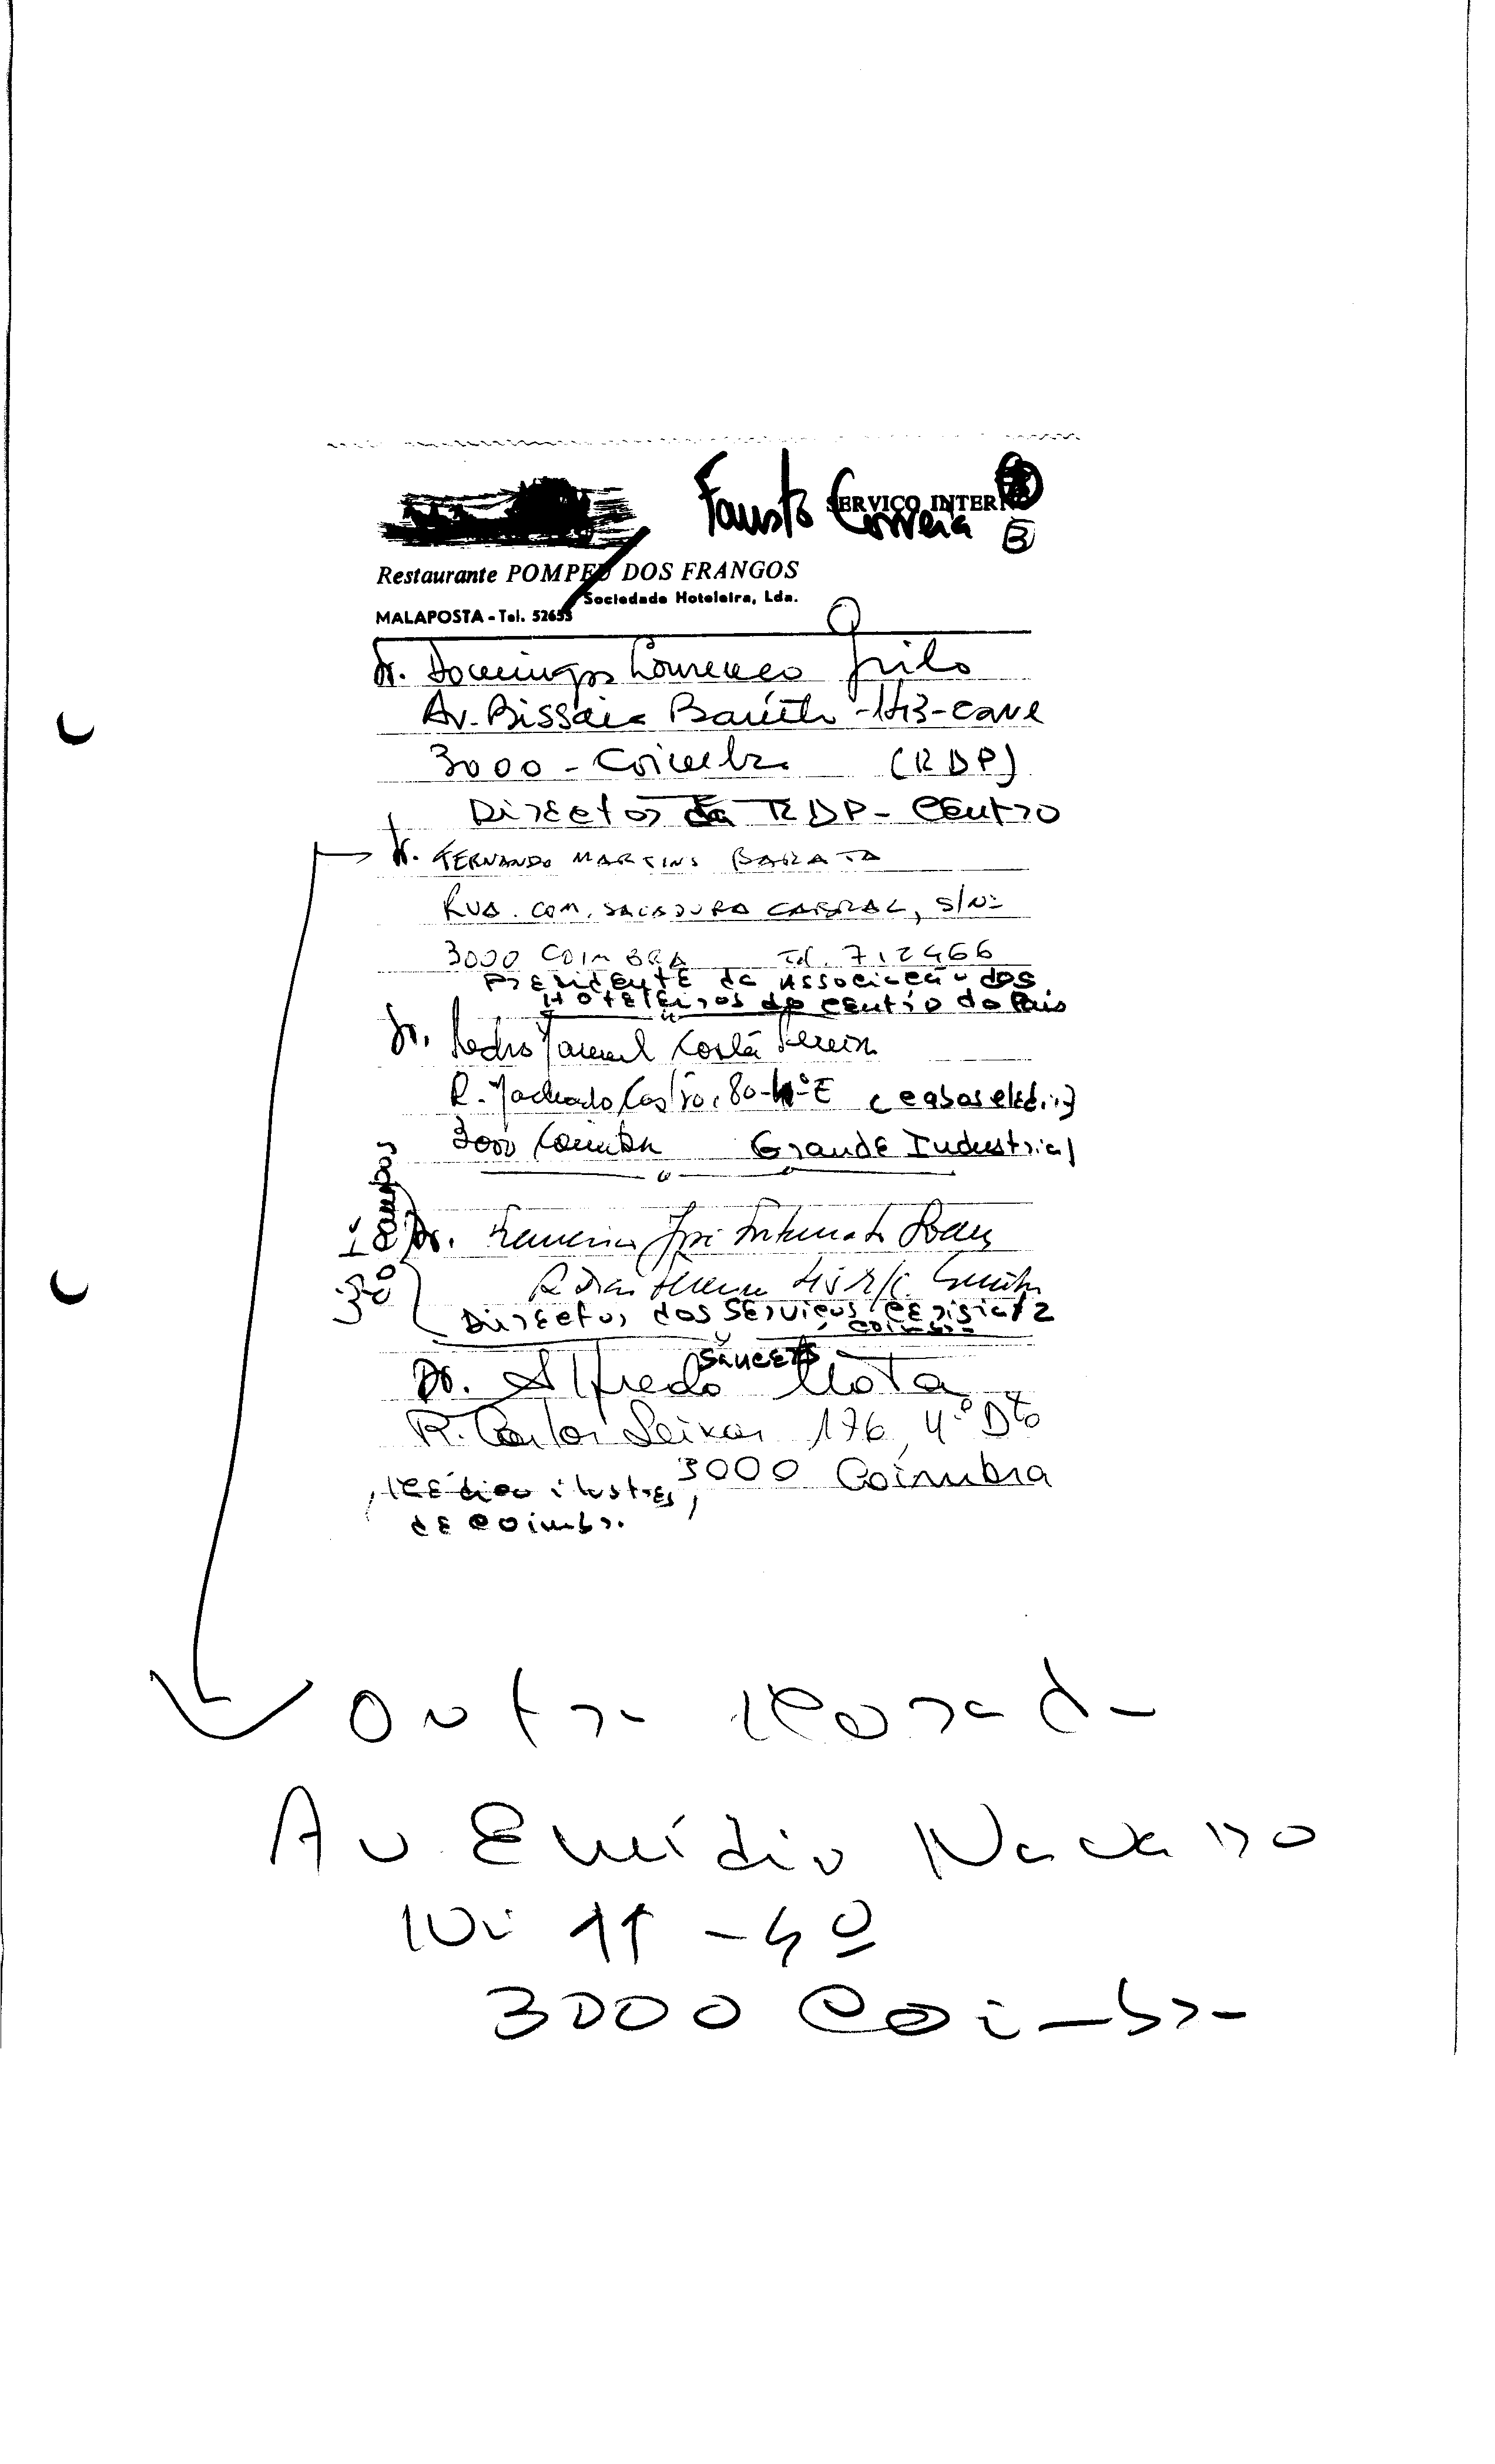 Fausto Correia
SERVIÇO INTERNO
3
Restaurante POMPEU DOS FRANGOS
Sociedade Hoteleira, Lda.
MALAPOSTA - Tel. 52653
Dr. Domingos Lourenço Grilo
Av. Bissaia Barreto - 143 - cave
3000 - Coimbra (RDP)
Director da RDP - Centro
Dr. FERNANDO MARTINS BARATA
RUA. COM. SACADURA CABRAL, S/Nº
3000 COIMBRA Tel. 712466
Presidente da Associação dos
Hoteleiros do Centro do País
Dr. Pedro Manuel Costa Pereira
R. Machado Castro, 80-4º E
3000 Coimbra Grande Industrial
Dr. José Fortunato
R Dias Ferreira r/c Coimbra
Director dos Serviços
Coimbra
Dr. Alfredo Mota
R. Carlos Seixas 176, 4º Dto
3000 Coimbra
Médico ilustres,
de Coimbra
Outra Morada
Av Emídio Navarro
Nº 11 - 4º
3000 Coimbra